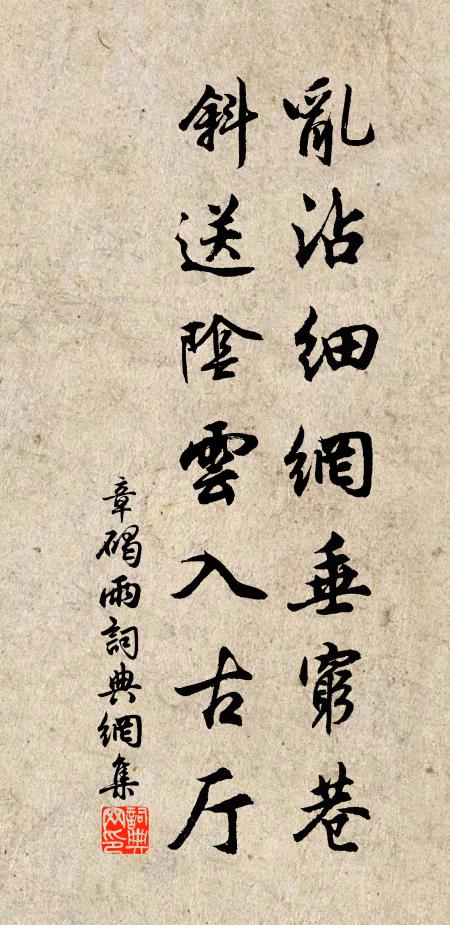 亂沾細網垂窮巷
斜送陰雲入古厅
章碣雨詞典網集
詞典網印